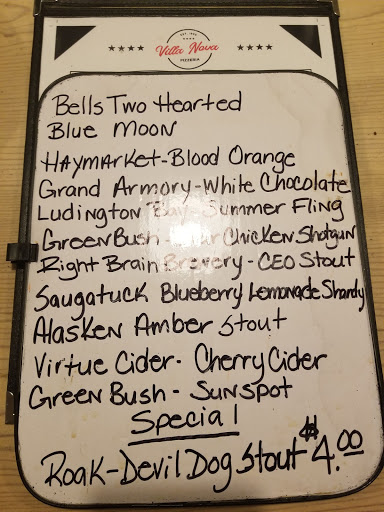 EST. 1978
Villa Nova
PIZZERIA
Bells Two Hearted
Blue Moon
Haymarket-Blood Orange
Grand Armory-White Chocolate
Ludington Bay-Summer Fling
Green Bush - Chicken Shotgun
Right Brain Brewery - CEO Stout
Saugatuck Blueberry Lemonade Shandy
Alasken Amber Stout
Virtue Cider- Cherry Cider
Green Bush - Sunspot
Special
Roak-Devil Dog Stout $4.00